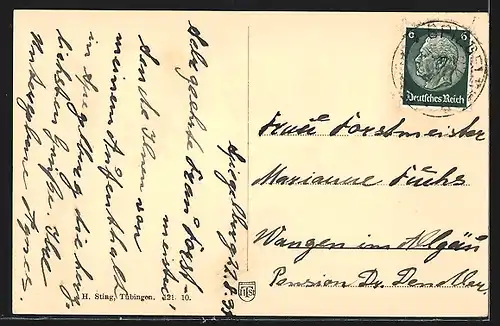 Spiegelberg 22.8.35
Sehr geehrte Frau Forst-
meister,
Sende Ihnen von
meinem Aufenthalt
in Spiegelberg die herz-
lichsten Grüße. Ihre
Agnes.
6 6
Deutsches Reich
Frau Forstmeister
Marianne Fuchs
Wangen im Algäu
Pension Dr.
H. Sting, Tübingen. 121. 10.